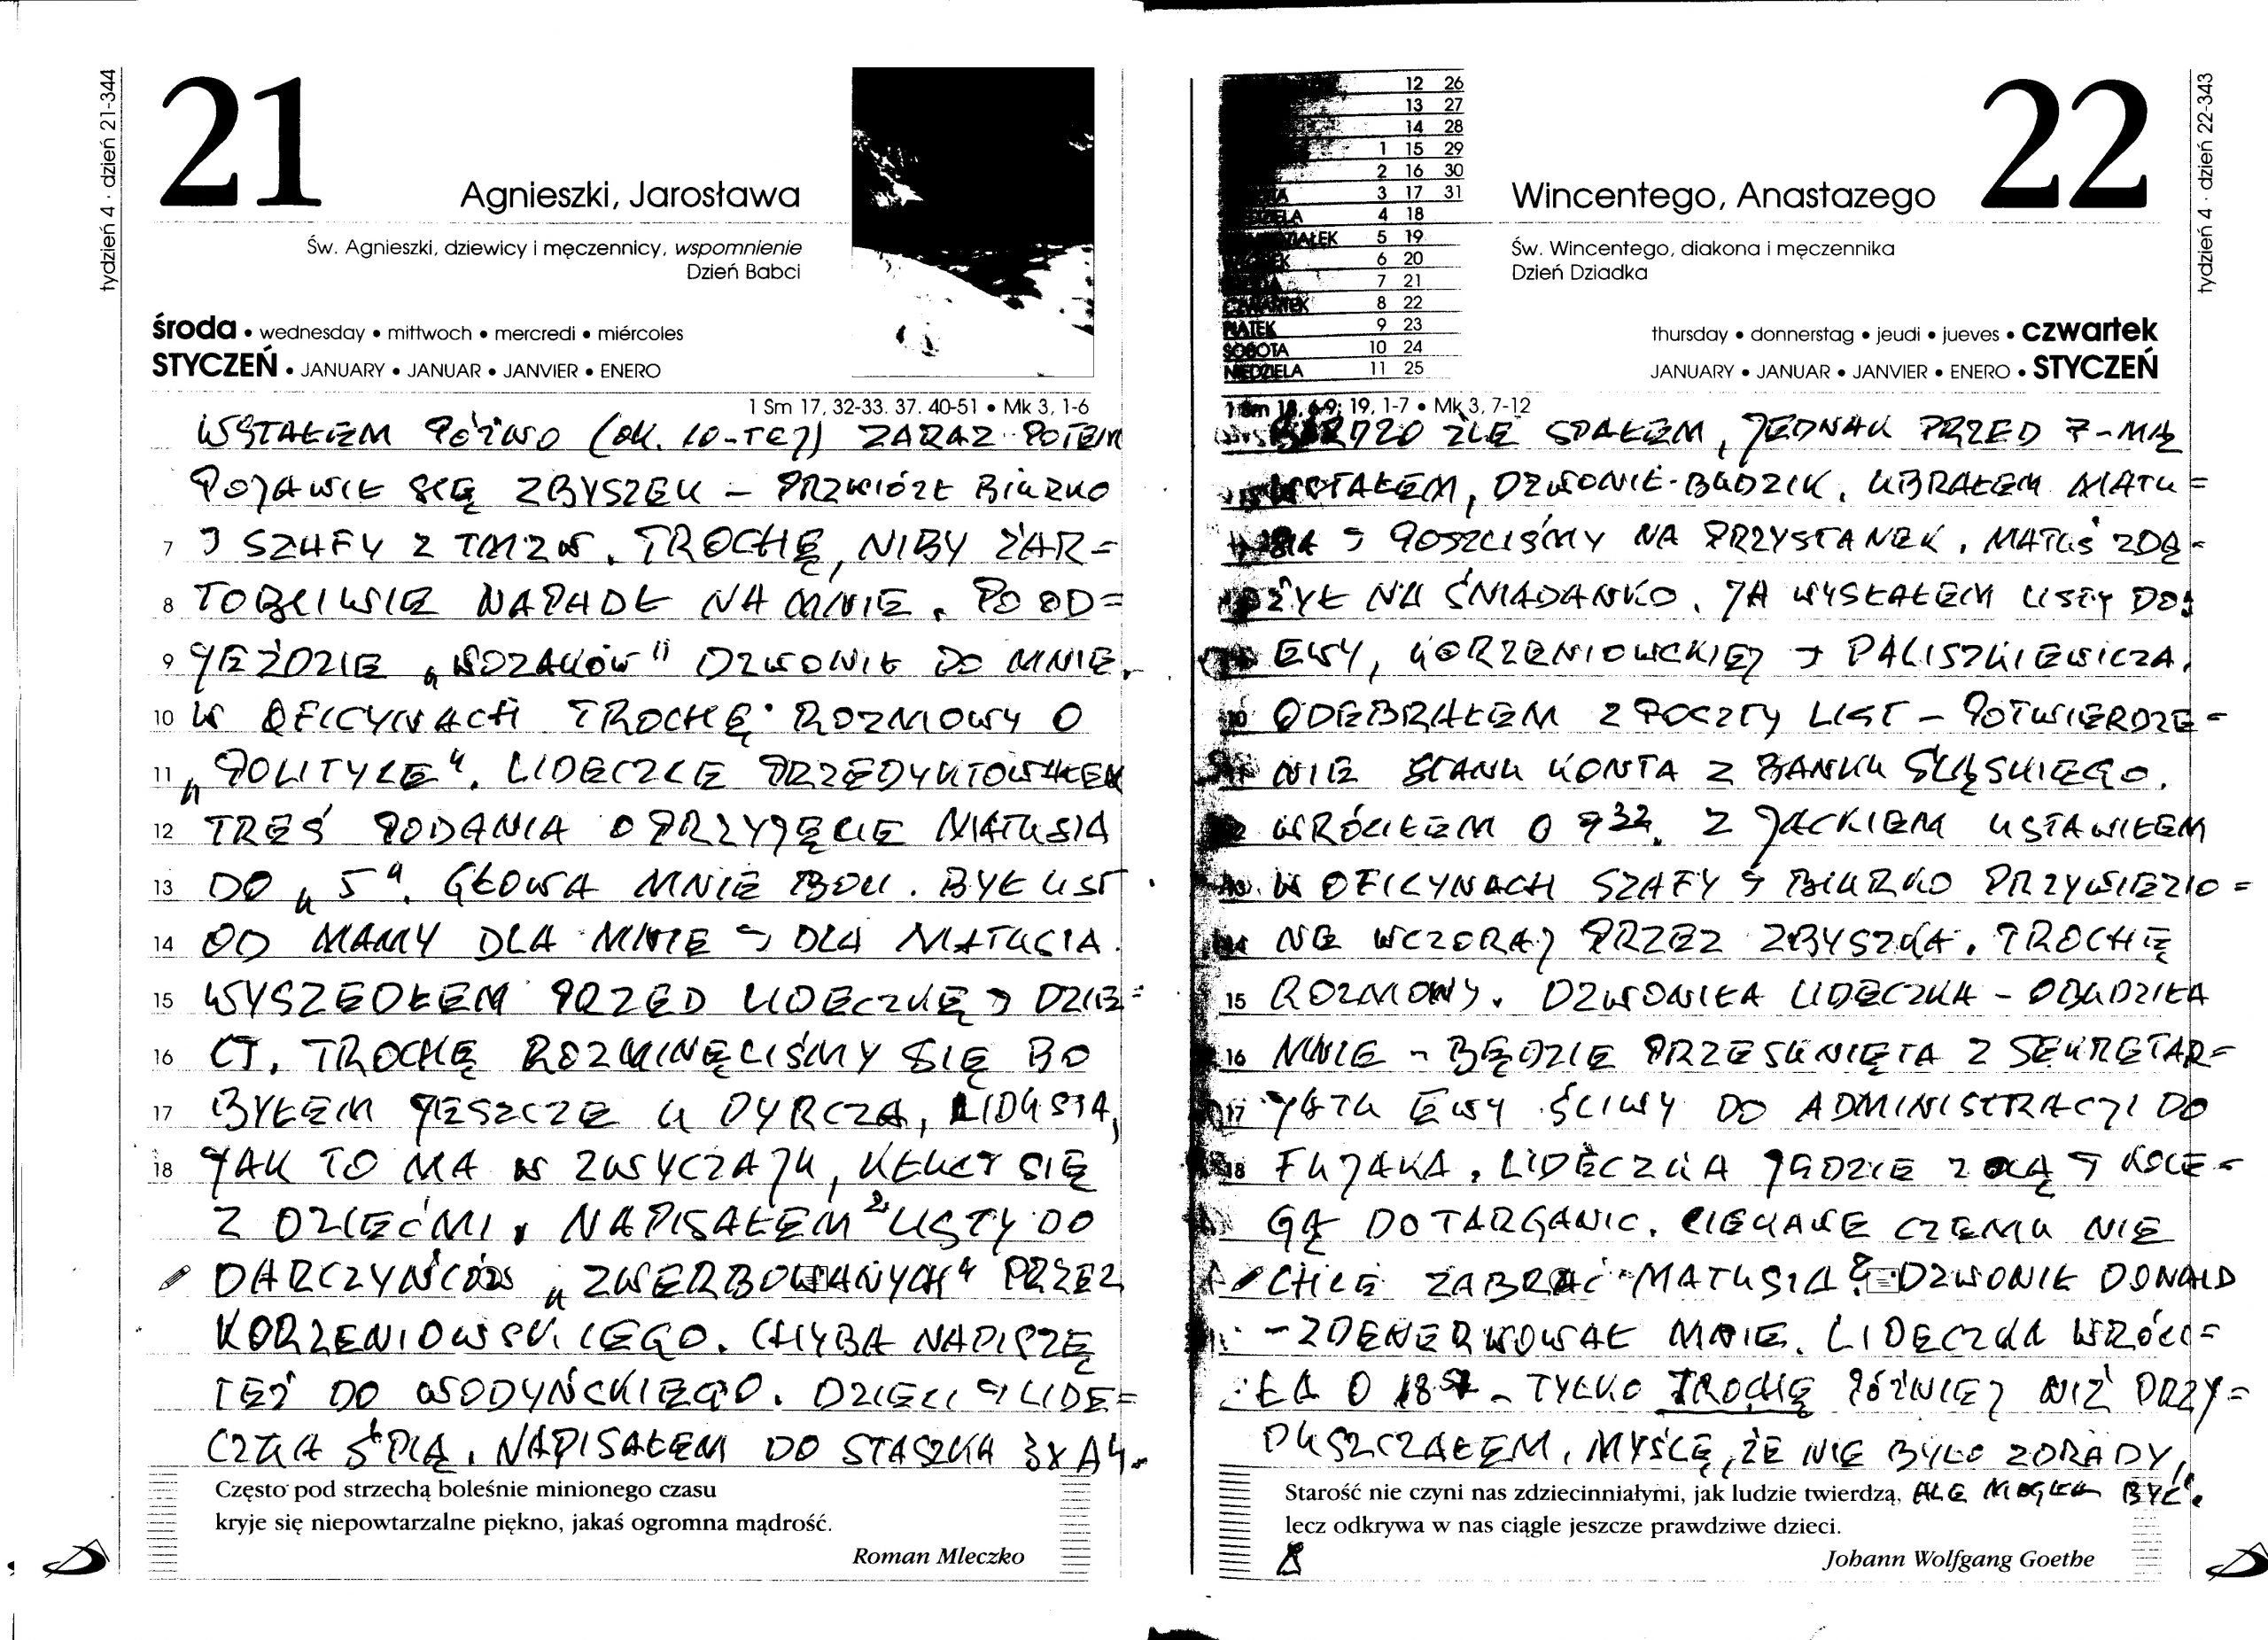 tydzień 4 · dzień 21-344
21
Agnieszki, Jarosława
Św. Agnieszki, dziewicy i męczennicy, wspomnienie
Dzień Babci
środa • wednesday • mittwoch • mercredi • miércoles
STYCZEŃ • JANUARY • JANUAR • JANVIER • ENERO
1 Sm 17, 32-33. 37. 40-51 • Mk 3, 1-6
WSTAŁEM PÓŹNO (OK. 10-TEJ) ZARAZ POTEM
POJAWIŁ SIĘ ZBYSZEK – PRZWIÓZŁ BIURKO
7 I SZAFY Z TMZW. TROCHĘ, NIBY ŻAR=
8 TOBLIWIE NAPADŁ NA MNIE. PO OD=
9 JEŹDZIE „WOZAKÓW" DZWONIŁ DO MNIE.
10 W OFICYNACH TROCHĘ ROZMOWY O
11 „POLITYCE". LIDECZCE PRZEDYKTOWAŁEM
12 TREŚ PODANIA O PRZYJĘCIE MATUSIA
13 DO „5". GŁOWA MNIE BOLI. BYŁ LIST
14 OD MAMY DLA MNIE I DLA MATUSIA.
15 WYSZEDŁEM PRZED LIDECZKĘ I DZIE=
16 CI. TROCHĘ ROZMINĘLIŚMY SIĘ BO
17 BYŁEM JESZCZE U DYRCZA, LIDUSIA,
18 JAK TO MA W ZWYCZAJU, KŁUCI SIĘ
Z DZIEĆMI. NAPISAŁEM 2 LISTY DO
DARCZYŃCÓW „ZWERBOWANYCH" PRZEZ
KORZENIOWSKIEGO. CHYBA NAPISZĘ
TEŻ DO WODYŃSKIEGO. DZIECI I LIDE=
CZKA ŚPIĄ. NAPISAŁEM DO STASZKA 3XA4.
Często pod strzechą boleśnie minionego czasu
kryje się niepowtarzalne piękno, jakaś ogromna mądrość.
Roman Mleczko
12 26
13 27
14 28
1 15 29
2 16 30
3 17 31
4 18
5 19
6 20
7 21
CZWARTEK 8 22
PIĄTEK 9 23
SOBOTA 10 24
NIEDZIELA 11 25
Wincentego, Anastazego
22
tydzień 4 · dzień 22-343
Św. Wincentego, diakona i męczennika
Dzień Dziadka
thursday • donnerstag • jeudi • jueves • czwartek
JANUARY • JANUAR • JANVIER • ENERO • STYCZEŃ
1 Sm 18, 6-9; 19, 1-7 • Mk 3, 7-12
BARDZO ŹLE SPAŁEM, JEDNAK PRZED 7-MĄ
WSTAŁEM, DZWONIŁ BUDZIK. UBRAŁEM MATU=
SIA I POSZLIŚMY NA PRZYSTANEK. MATUŚ ZDĄ=
ŻYŁ NA ŚNIADANKO. JA WYSŁAŁEM LISTY DO:
EWY, KORZENIOWSKIEJ I PALISZKIEWICZA.
10 ODEBRAŁEM Z POCZTY LIST – POTWIERDZE=
NIE STANU KONTA Z BANKU ŚLĄSKIEGO.
WRÓCIŁEM O 9 32. Z JACKIEM USTAWIŁEM
W OFICYNACH SZAFY I BIURKO PRZYWIEZIO=
14 NE WCZORAJ PRZEZ ZBYSZKA. TROCHĘ
15 ROZMOWY. DZWONIŁA LIDECZKA – OBUDZIŁA
16 MNIE – BĘDZIE PRZESUNIĘTA Z SEKRETAR=
17 JATU EWY ŚLIWY DO ADMINISTRACJI DO
18 FUJAKA. LIDECZKA JEDZIE Z OLĄ I KOLE=
GĄ DO TARGANIC. CIEKAWE CZEMU NIE
CHCE ZABRAĆ MATUSIA? DZWONIŁ DONALD
– ZDENERWOWAŁ MNIE. LIDECZKA WRÓCI=
ŁA O 18 – TYLKO TROCHĘ PÓŹNIEJ NIŻ PRZY=
PUSZCZAŁEM, MYŚLĘ, ŻE NIE BYŁO ZDRADY,
ALE MOGŁA BYĆ.
Starość nie czyni nas zdziecinniałymi, jak ludzie twierdzą,
lecz odkrywa w nas ciągle jeszcze prawdziwe dzieci.
Johann Wolfgang Goethe